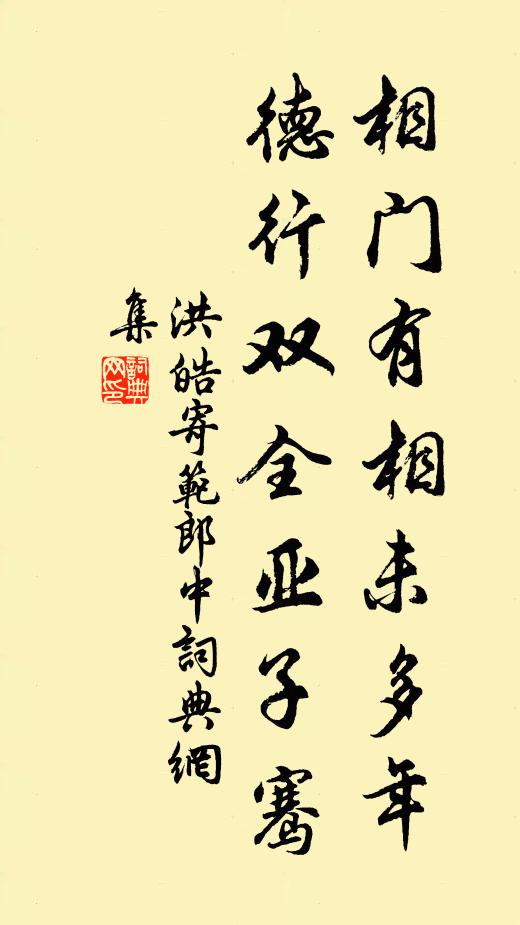 相门有相未多年
德行双全亚子骞
洪皓寄範郎中詞典網
集
詞典
网印